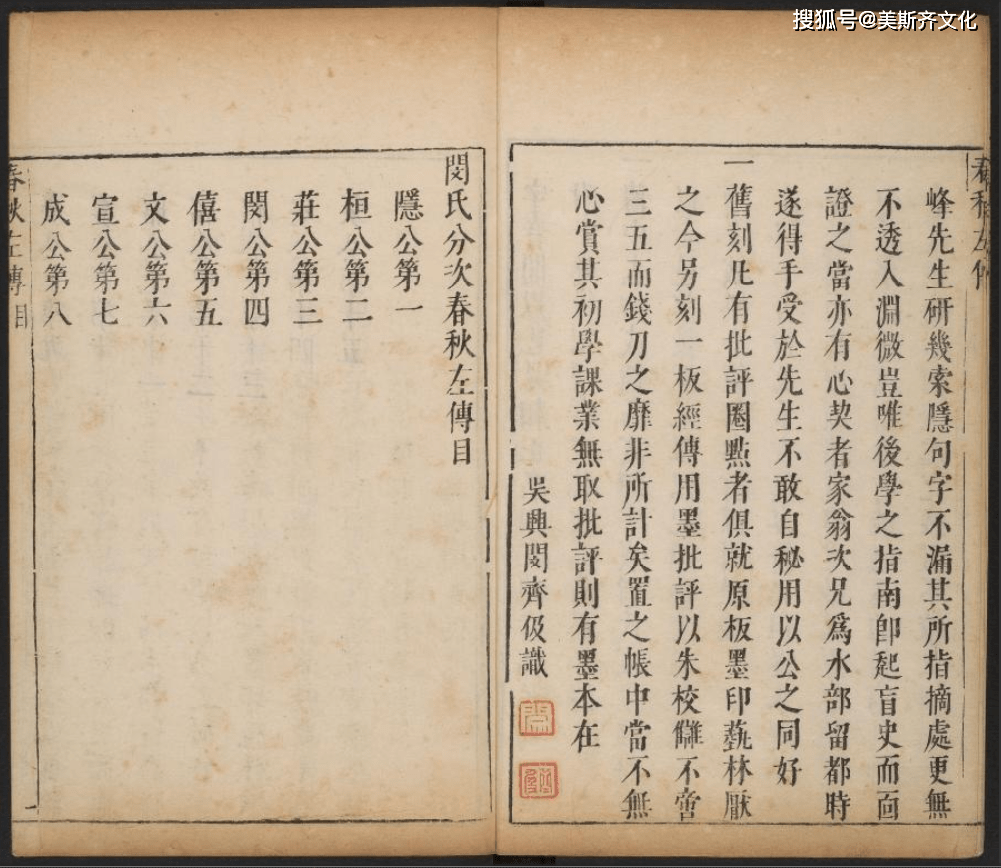 搜狐号@美斯齐文化
春秋左傳
峰先生研幾索隱句字不漏其所指摘處更無
不透入淵微豈唯後學之指南卽起盲史而面
證之當亦有心契者家翁次兄爲水部留都時
遂得手受於先生不敢自秘用以公之同好
一舊刻凡有批評圈點者俱就原板墨印藝林厭
之今另刻一板經傳用墨批評以朱校讎不啻
三五而錢刀之靡非所計矣置之帳中當不無
心賞其初學課業無取批評則有墨本在
吳興閔齊伋識
閔氏分次春秋左傳目
隱公第一
桓公第二
莊公第三
閔公第四
僖公第五
文公第六
宣公第七
成公第八
春秋左傳目